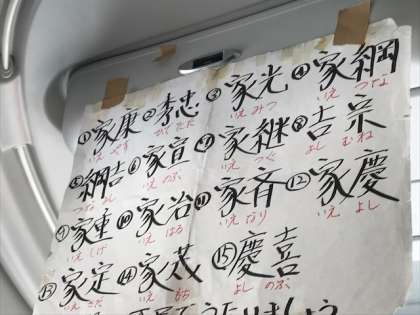 ①家康 ②秀忠 ③家光 ④家綱
いえ やす ひで ただ いえ みつ いえ つな
⑤綱吉 ⑥家宣 ⑦家継 ⑧吉宗
つな よし いえ のぶ いえ つぐ よし むね
⑨家重 ⑩家治 ⑪家斉 ⑫家慶
いえ しげ いえ はる いえ なり いえ よし
⑬家定 ⑭家茂 ⑮慶喜
いえ さだ いえ もち よし のぶ